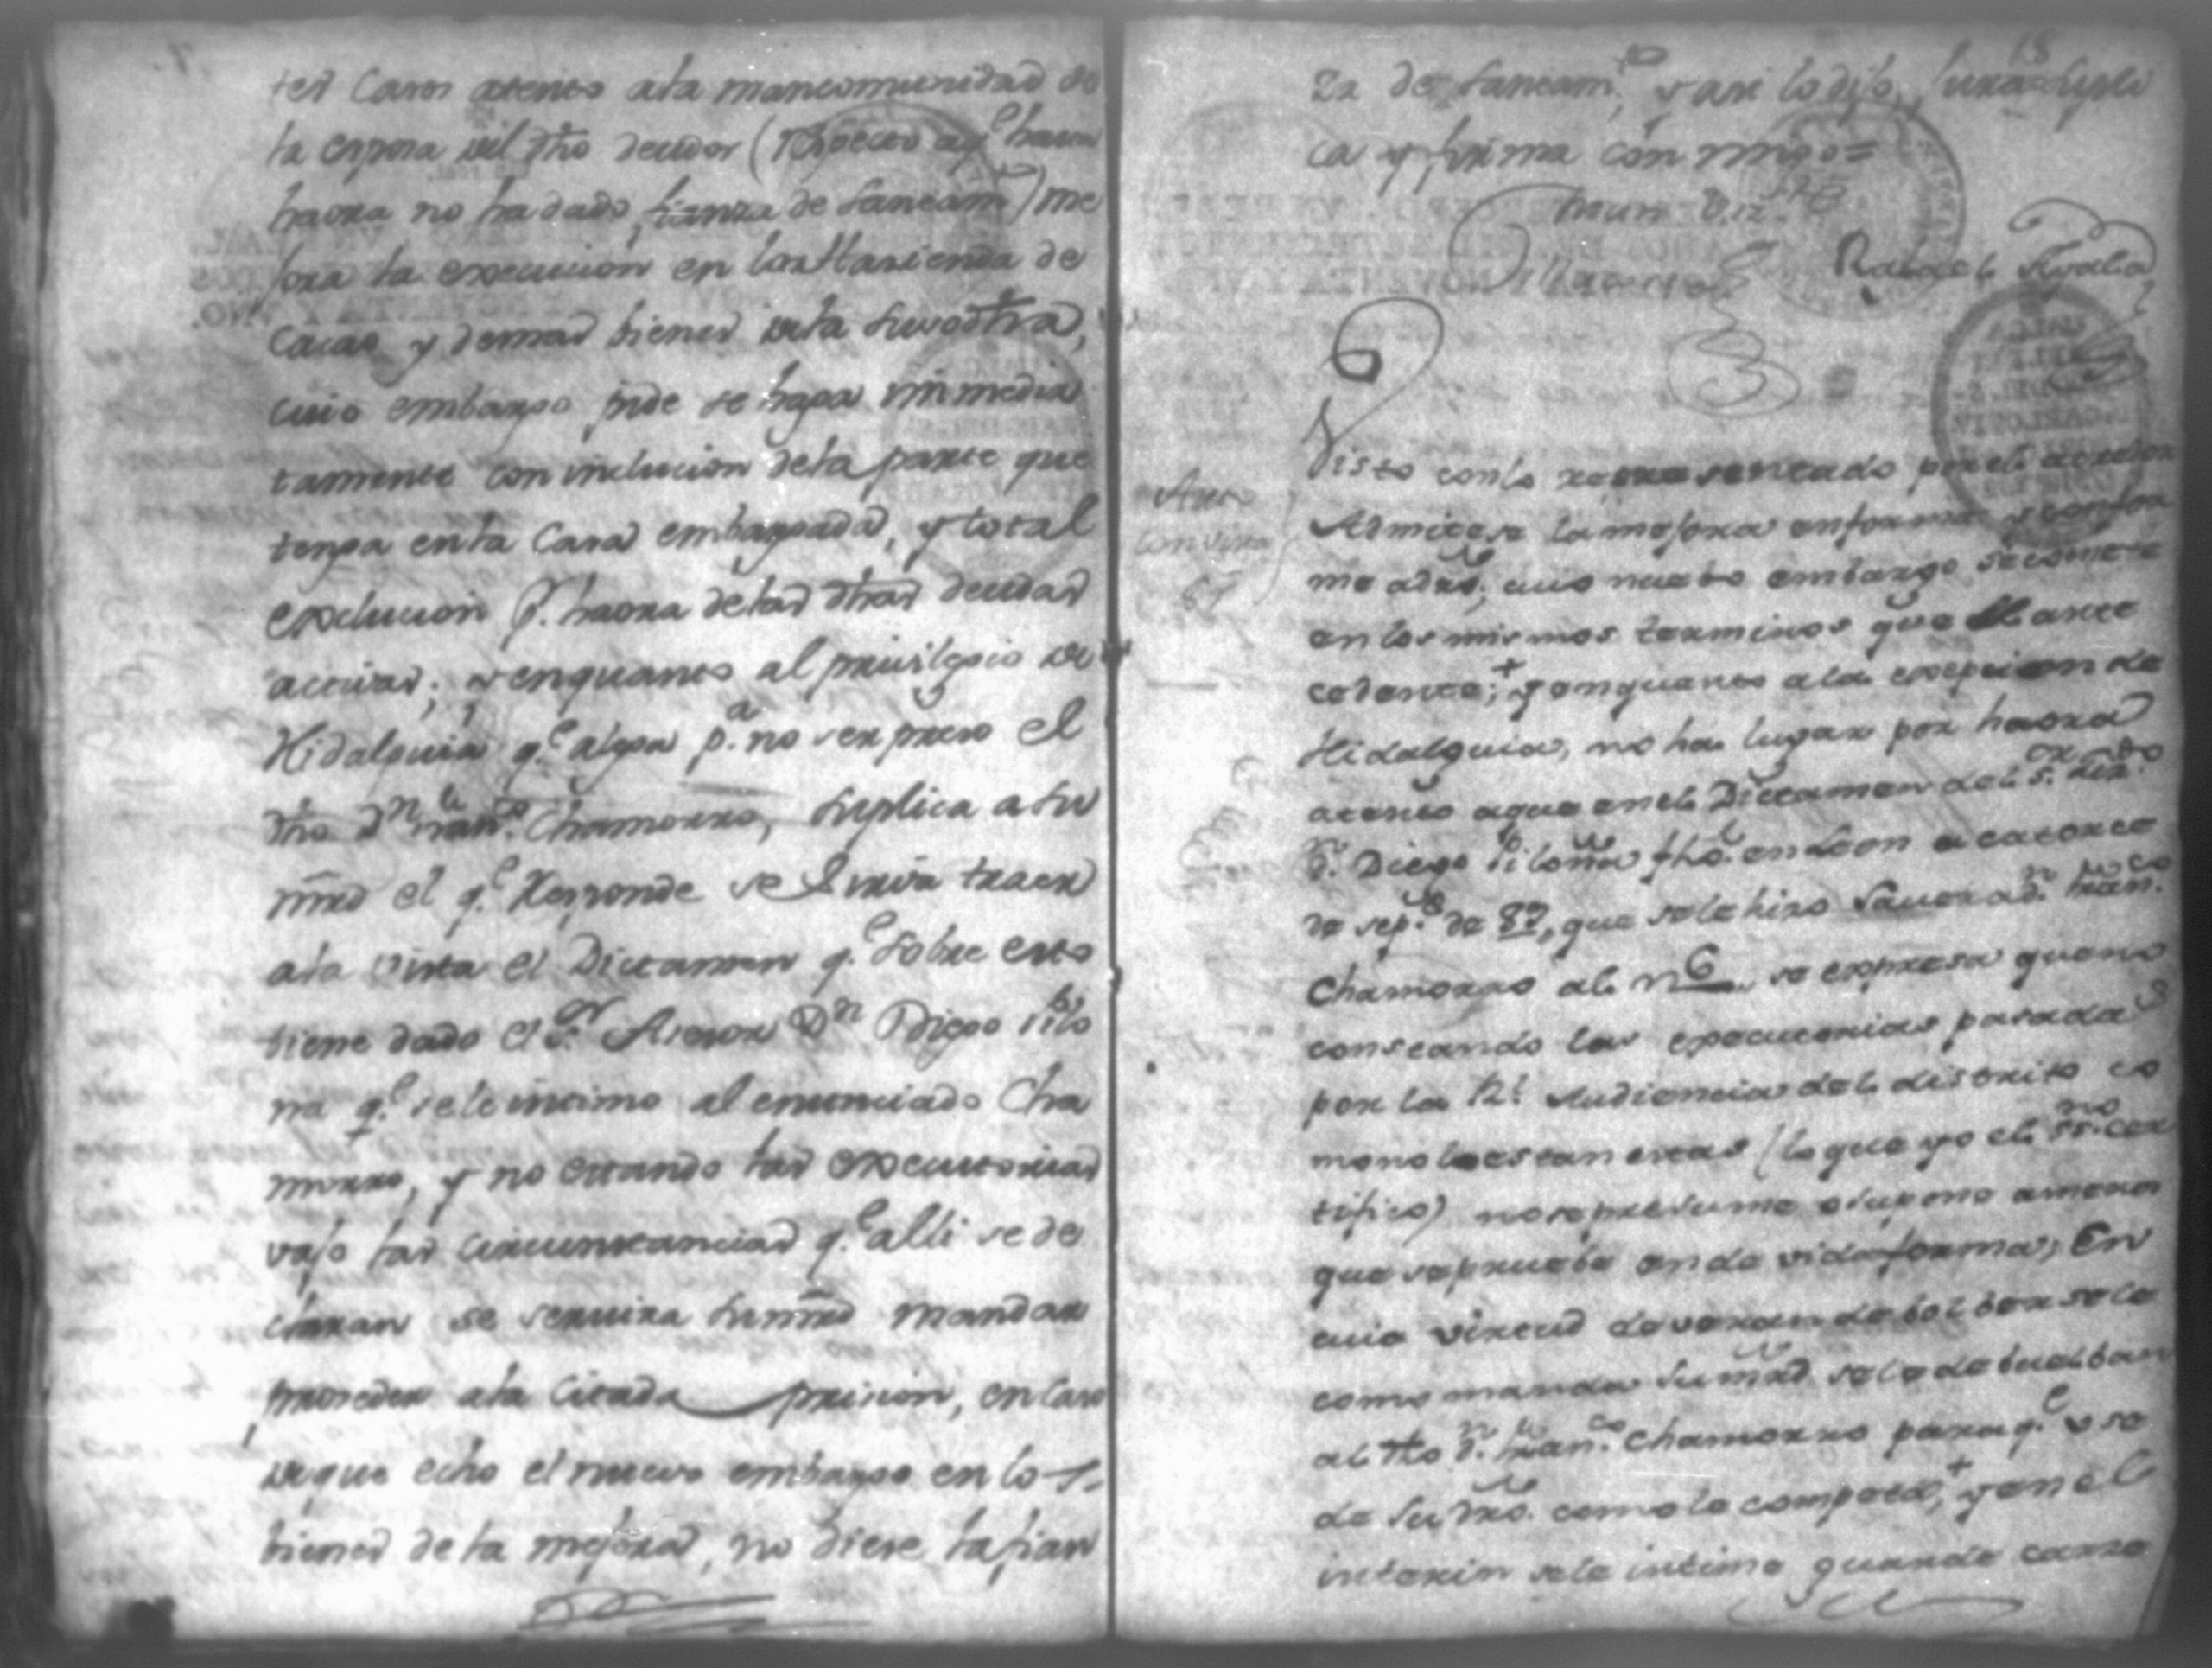 tes Casos atento ala mancomunidad de
la esposa del dho deudor (respecto aqe. hasta
haora no ha dado fianza de saneamto) me
jora la execucion en las Haziendas de
Cacao y demas bienes dela suso dha,
cuio embargo pide se haga inmedia
tamente con inclucion dela parte que
tenga enla Casa embargada, y total
exclucion p.r haora delas dhas deudas
activas; y enquanto al privilegio de
Hidalguia q.e alega p.a no ser preso el
dho Dn Franco. Chamorro, suplica a su
mrd el q.e Responde se sirva traer
ala vista el Dictamen q.e sobre esto
tiene dado el S.or Asesor Dn Diego Pilo
ña q.e sele intimo al enunciado Cha
morro, y no estando las executorias
vajo las circunstancias q.e alli se de
claran se servira su mrd mandar
proceder ala citada prision, en caso
deque echo el nuevo embargo en los
bienes dela mejora, no diere la fian
18
za de saneamto, y asi lo dijo, jura supli
ca y firma con migo=
Rafael Ayala
Visto conlo representado por el actor
Auto
Admitese la mejora enforma y confor
me adro; cuio nuebo embargo se comete
67
en los mismos terminos que el ante
cedente; y enquanto ala excepcion de
Hidalguia, no ha lugar por haora
atento aque enel Dictamen del S.or
D.n Diego Piloña fho. en Leon a catorce
de sep.e de 87, que sele hizo saver a d.n Fran.co
Chamorro al n 6 se expresa que no
constando las executorias pasadas
por la R.l Audiencia del distrito co
mo no lo estan estas (lo que yo el ss.no cer
tifico) no se presume o supone a menos
que se prueba en de vida forma; En
cuia virtud deveran debolberse le
como manda su mrd. sele debuelban
al dho d.n Fran.co Chamorro para q.e use
de su dro. como le competa, y en el
interin sele intime guarde carze